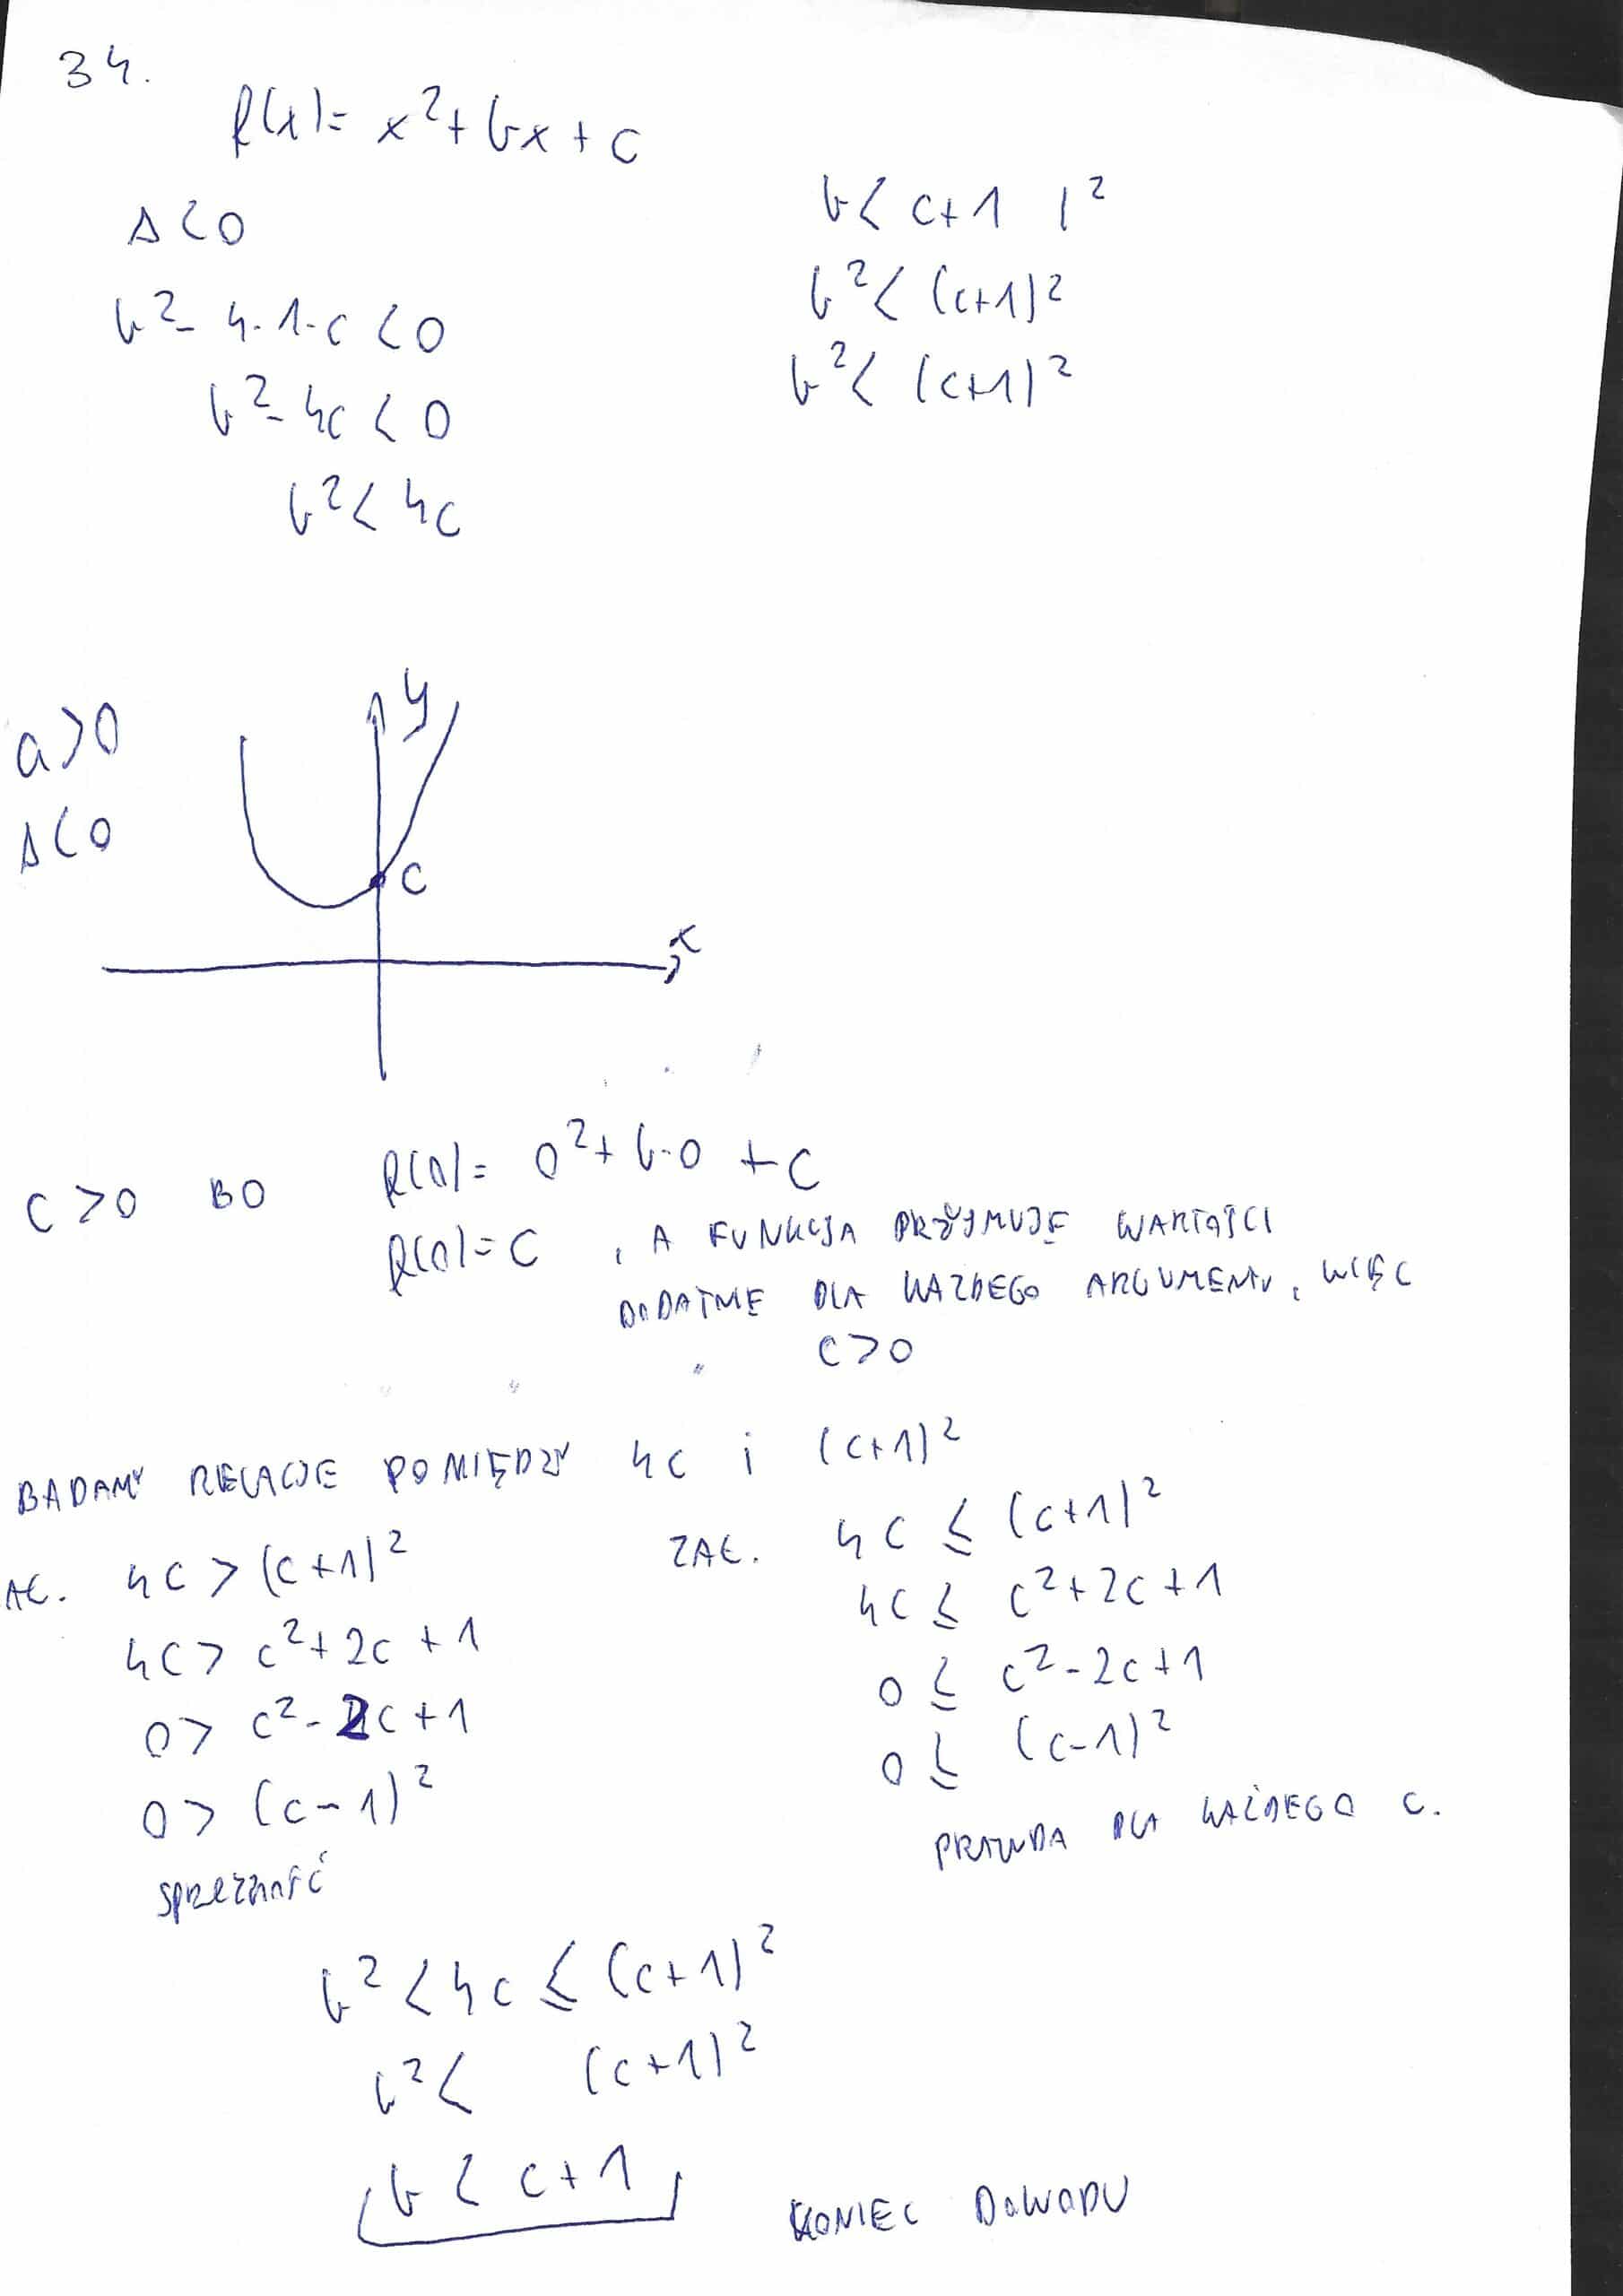 34.
f(x)= x²+bx+c
Δ<0
b²-4·1·c<0
b²-4c<0
b²<4c
b<c+1 |²
b²<(c+1)²
b²<(c+1)²
a>0
Δ<0
y
c
x
c>0 BO f(0)= 0²+b·0+c
f(0)=c , A FUNKCJA PRZYJMUJE WARTOŚCI
DODATNIE DLA KAŻDEGO ARGUMENTU, WIĘC
c>0
BADAMY RELACJE POMIĘDZY 4c i (c+1)²
AŁ. 4c>(c+1)²
4c>c²+2c+1
0>c²-2c+1
0>(c-1)²
SPRZECZNOŚĆ
ZAŁ. 4c≤(c+1)²
4c≤c²+2c+1
0≤c²-2c+1
0≤(c-1)²
PRAWDA DLA KAŻDEGO C.
b²<4c≤(c+1)²
b²< (c+1)²
b<c+1
KONIEC DOWODU